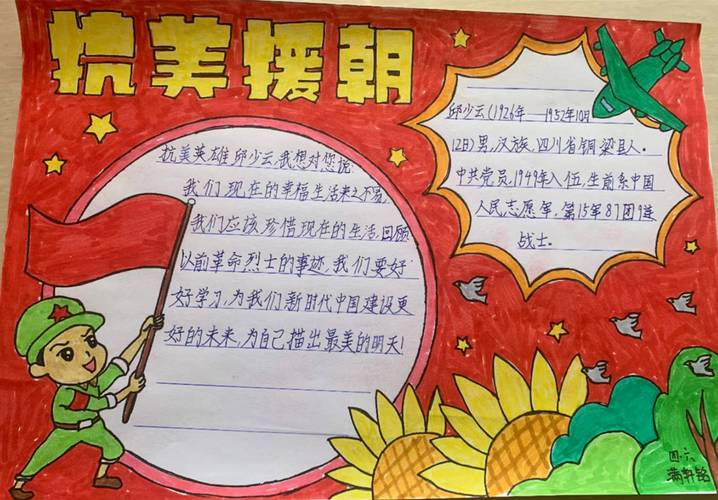 抗美援朝
抗美英雄邱少云,我想对您说:
我们现在的幸福生活来之不易,
我们应该珍惜现在的生活,回顾
以前革命烈士的事迹,我们要好
好学习,为我们新时代中国建设更
好的未来,为自己描出最美的明天!
邱少云(1926年——1952年10月
12日)男,汉族,四川省铜梁县人。
中共党员,1949年入伍,生前系中国
人民志愿军,第15军87团9连
战士。
四·六